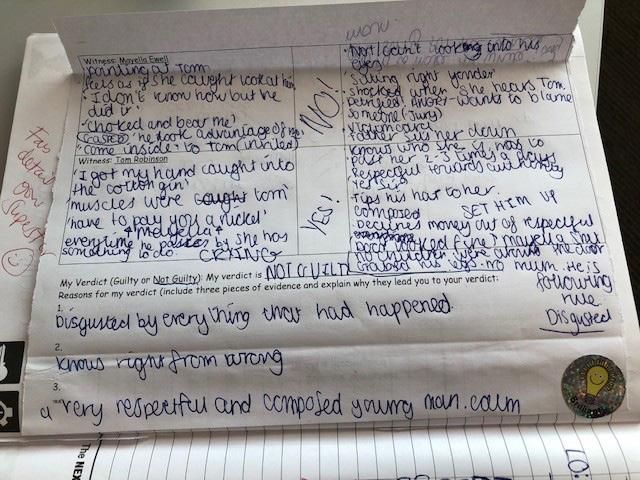 Witness: Mayella Ewell
pointing at Tom
feels as if she caught look at him
'I don't know how but he
did it'
'choked and beat me'
(raped) he took advantage of me
'come inside' to Tom (invited)
NO!
Not/can't looking into his
eyes
sitting right yonder
shocked when she hears Tom
wants to blame
someone (Jury)
victim card
looks her down
Witness: Tom Robinson
'I got my hand caught into
the cotton gin'
muscles were caught torn
'have to pay you a nickel'
↑ mayella ↑
everytime he passes by she has
something to do.
CRYING
YES!
knows who she is, has to
past her 2-3 times a days
respectful towards authority
'yes sir'
Tips his hat to her.
composed
SET HIM UP
Declines money out of respect
Door looked fine) mayella shut
no children were around the door
Grabbed his legs. no mum. He is
following
rule
Disgusted
My Verdict (Guilty or Not Guilty): My verdict is NOT GUILTY
Reasons for my verdict (include three pieces of evidence and explain why they lead you to your verdict:
1.
Disgusted by everything that had happened
2.
knows right from wrong
3.
a very respectful and composed young man. calm
Fab
detail
you
Superstar
The NEX
LO: